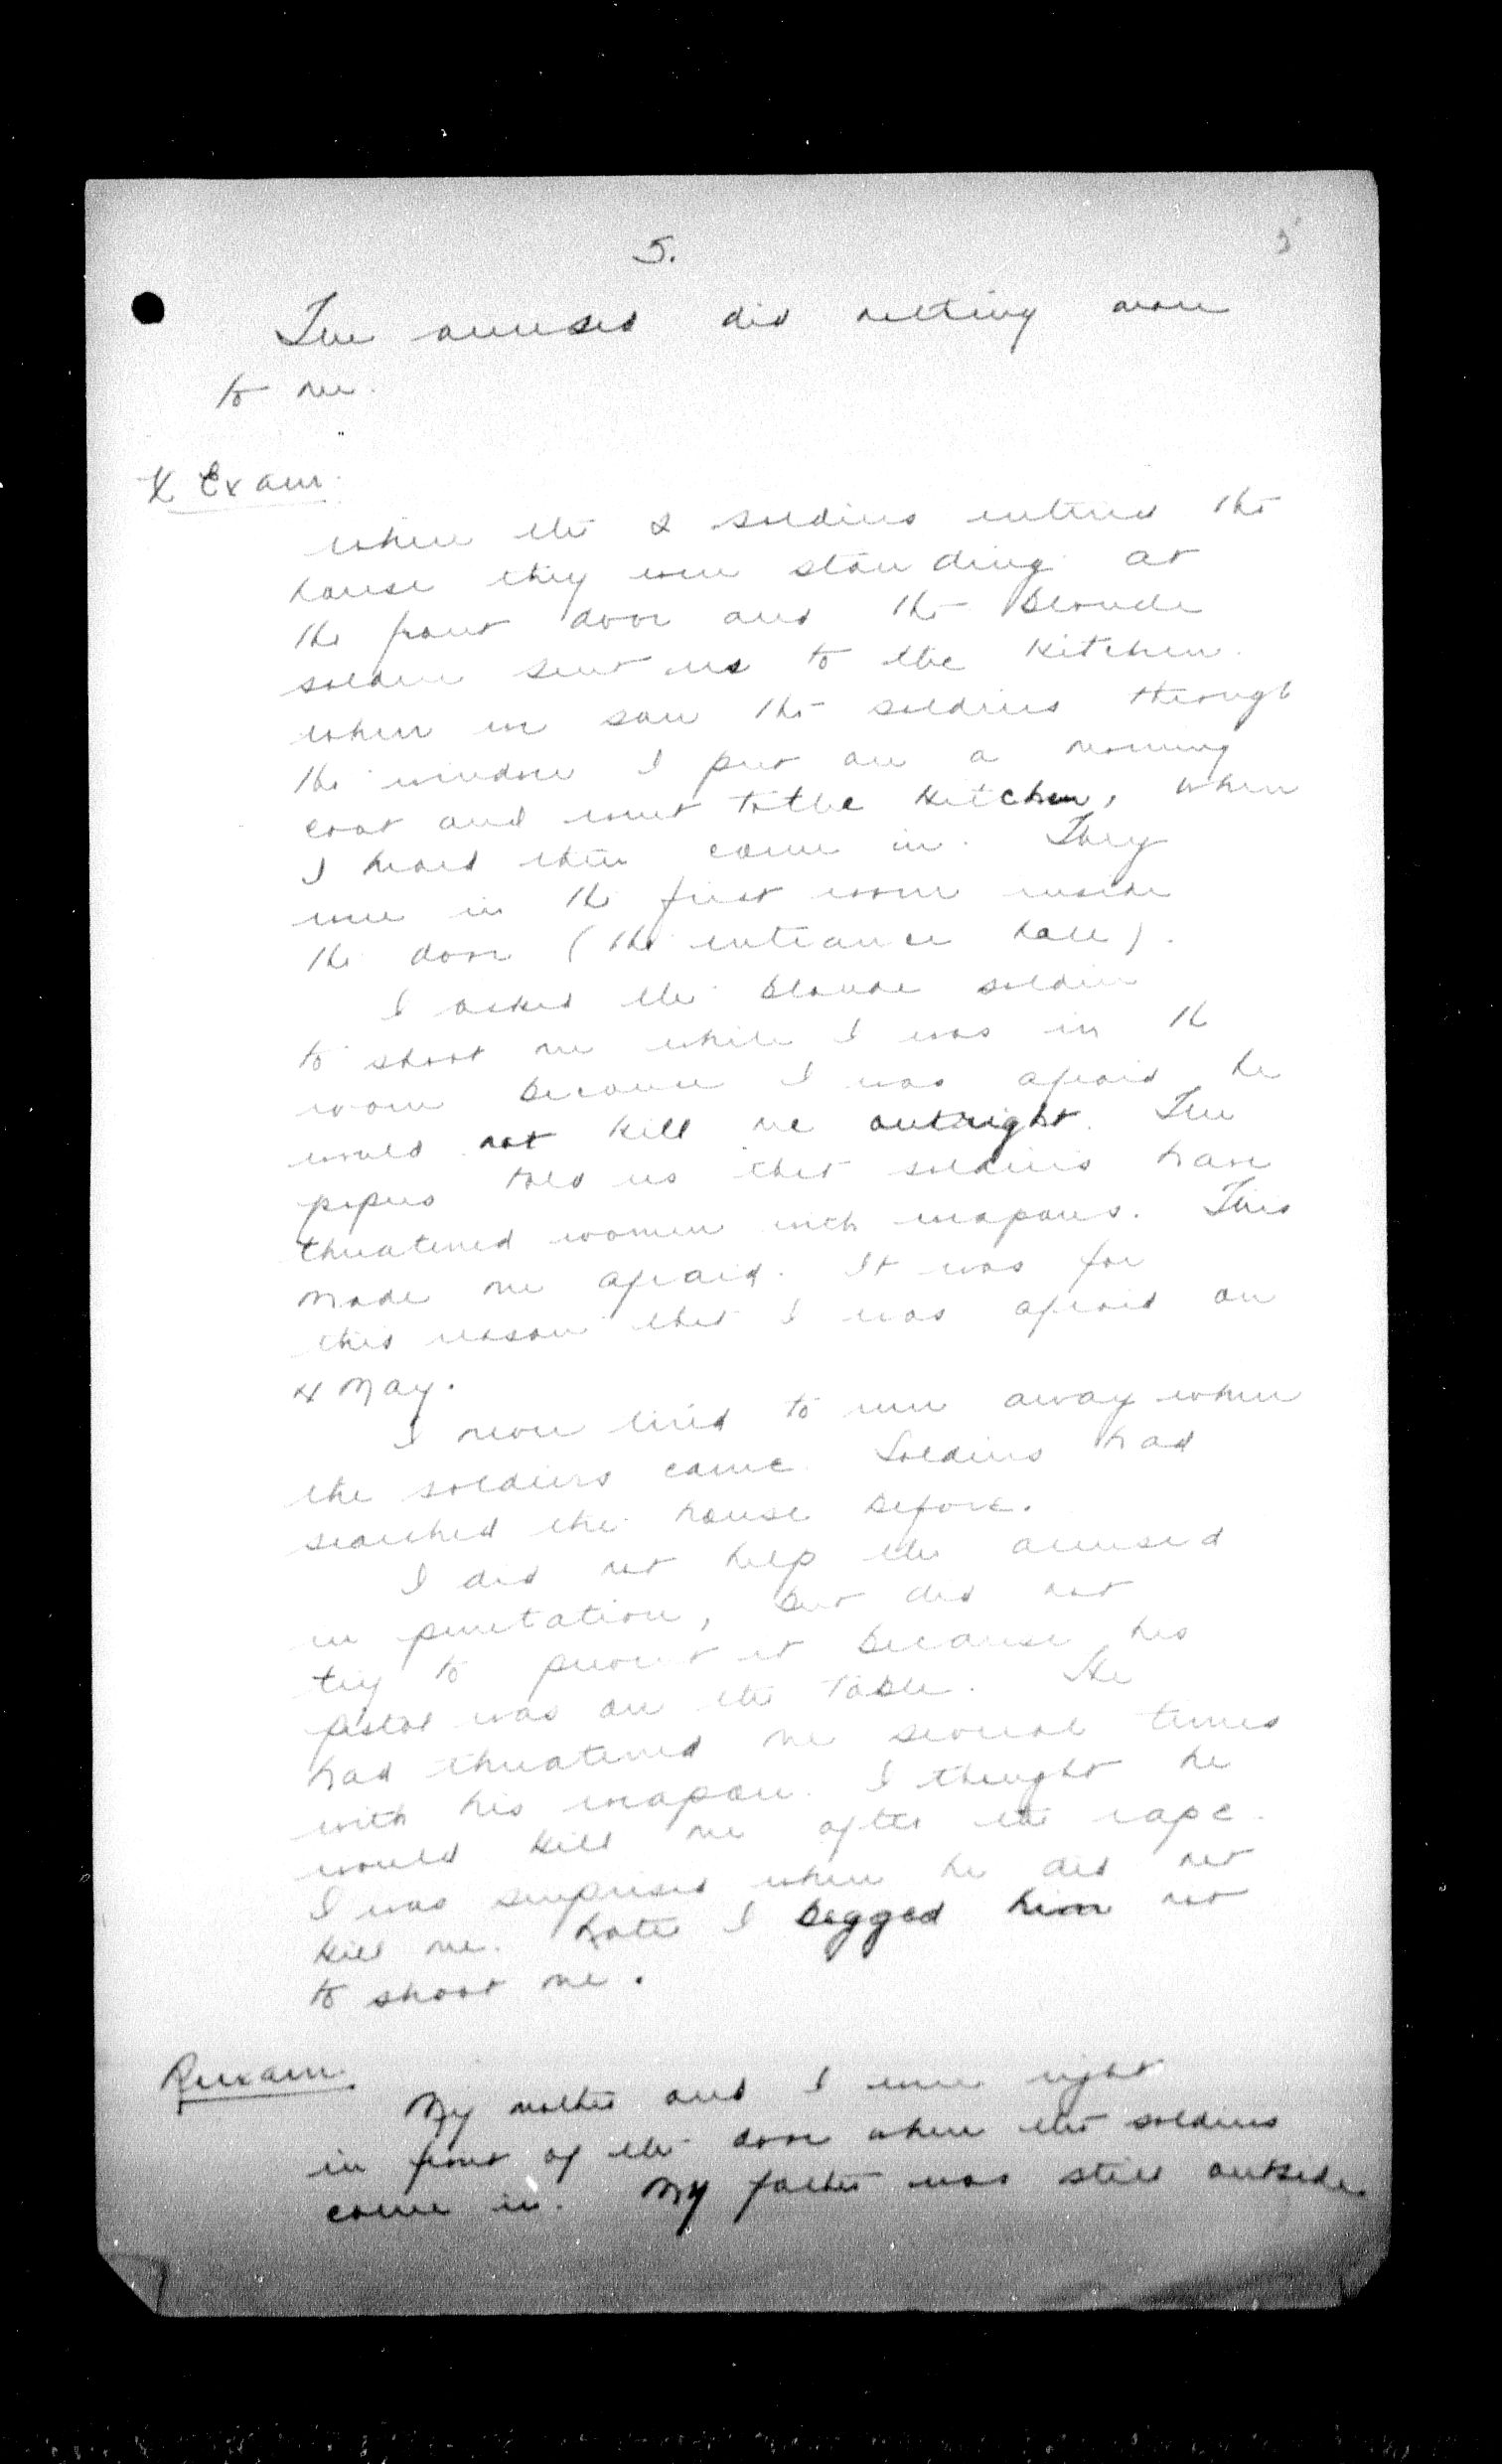 5.
5
The accused did nothing more
to me.
X Exam.
When the 2 soldiers entered the
house they were standing at
the front door and the blonde
soldier sent us to the kitchen.
When we saw the soldiers through
the window I put on a morning
coat and went to the kitchen, when
I heard them come in. They
were in the first room inside
the door (the entrance hall).
I asked the blonde soldier
to shoot me while I was in the
room because I was afraid he
would not kill me outright. The
papers told us that soldiers have
threatened women with weapons. This
made me afraid. It was for
this reason that I was afraid on
4 May.
I never tried to run away when
the soldiers came. Soldiers had
searched the house before.
I did not help the accused
in penetration, but did not
try to prevent it because his
pistol was on the table. He
had threatened me several times
with his weapon. I thought he
would kill me after the rape.
I was surprised when he did not
kill me. Later I begged him not
to shoot me.
Rexam.
My mother and I were right
in front of the door when the soldiers
came in. My father was still outside.